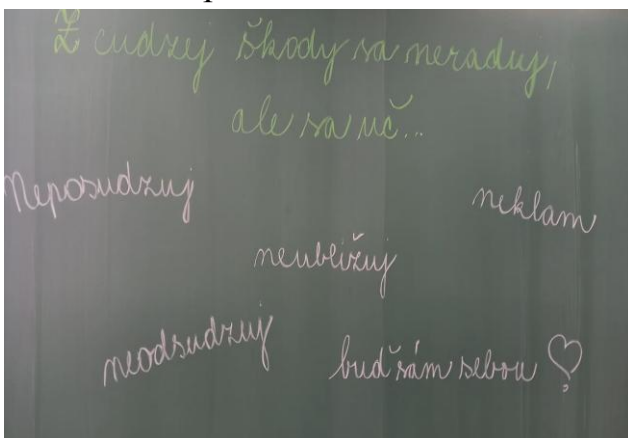 Z cudzej škody sa neraduj,
ale sa uč...
Neposudzuj
neklam
neubližuj
neodsudzuj
buď sám sebou